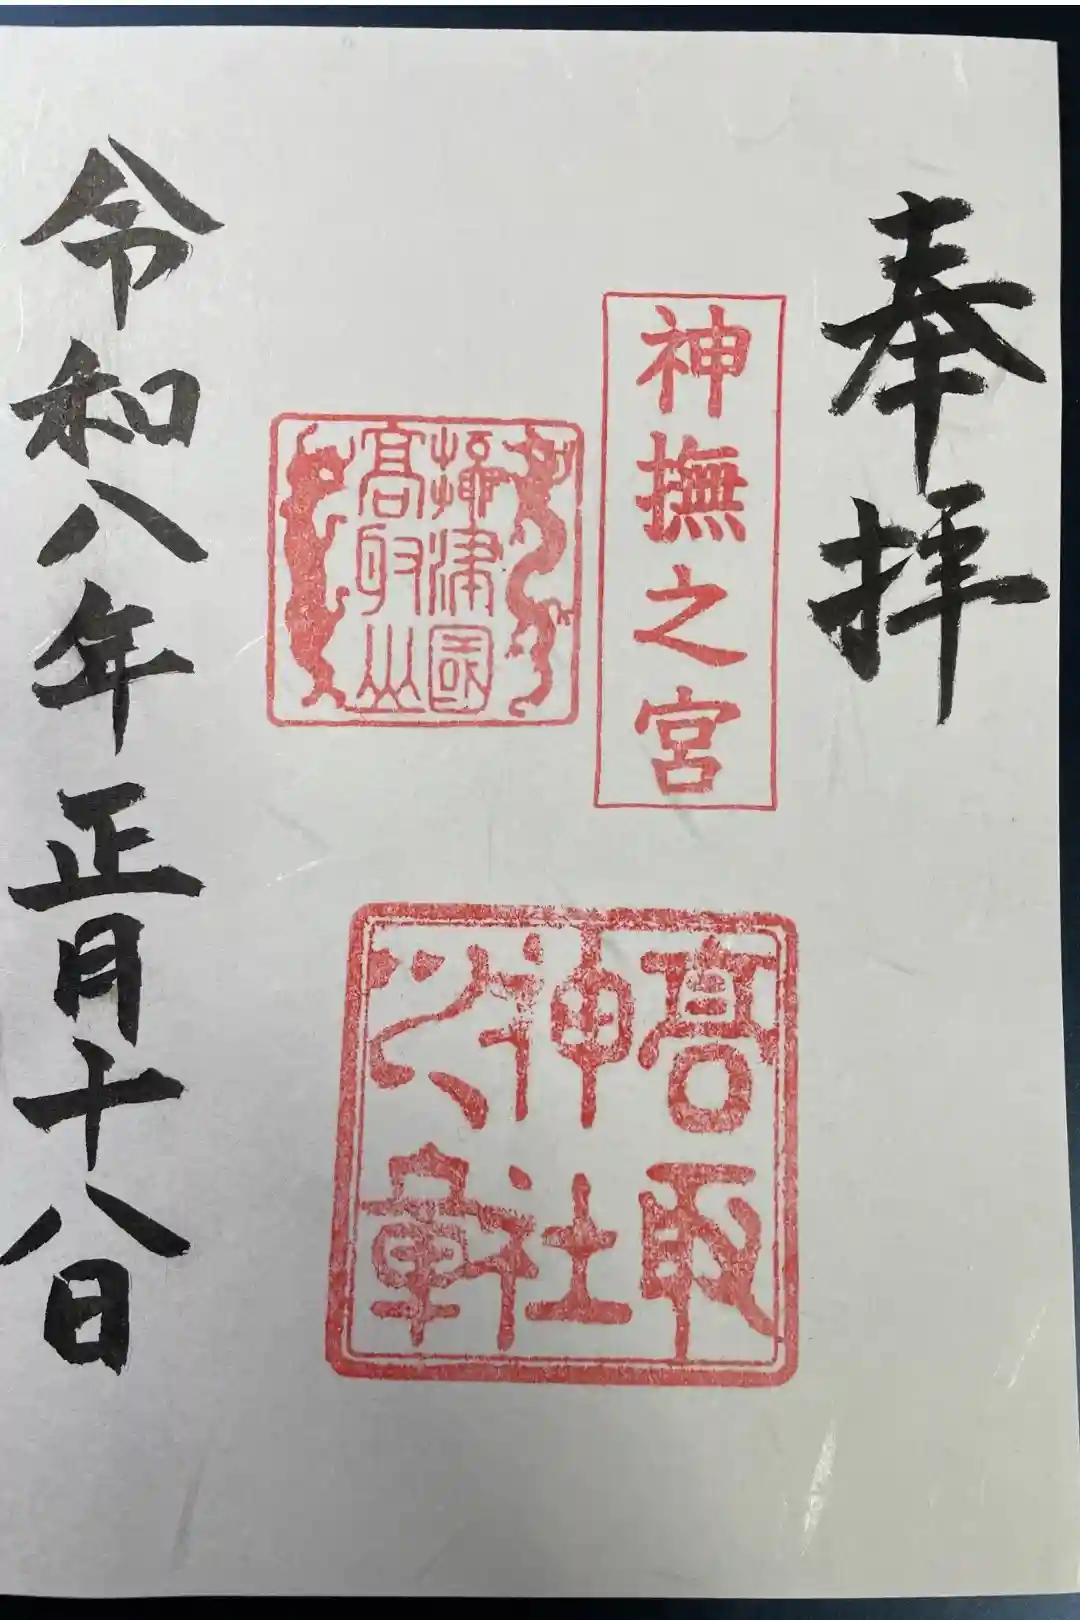 奉拝
神撫之宮
攝津國
高取山
高取
神社
之章
令和八年正月十八日